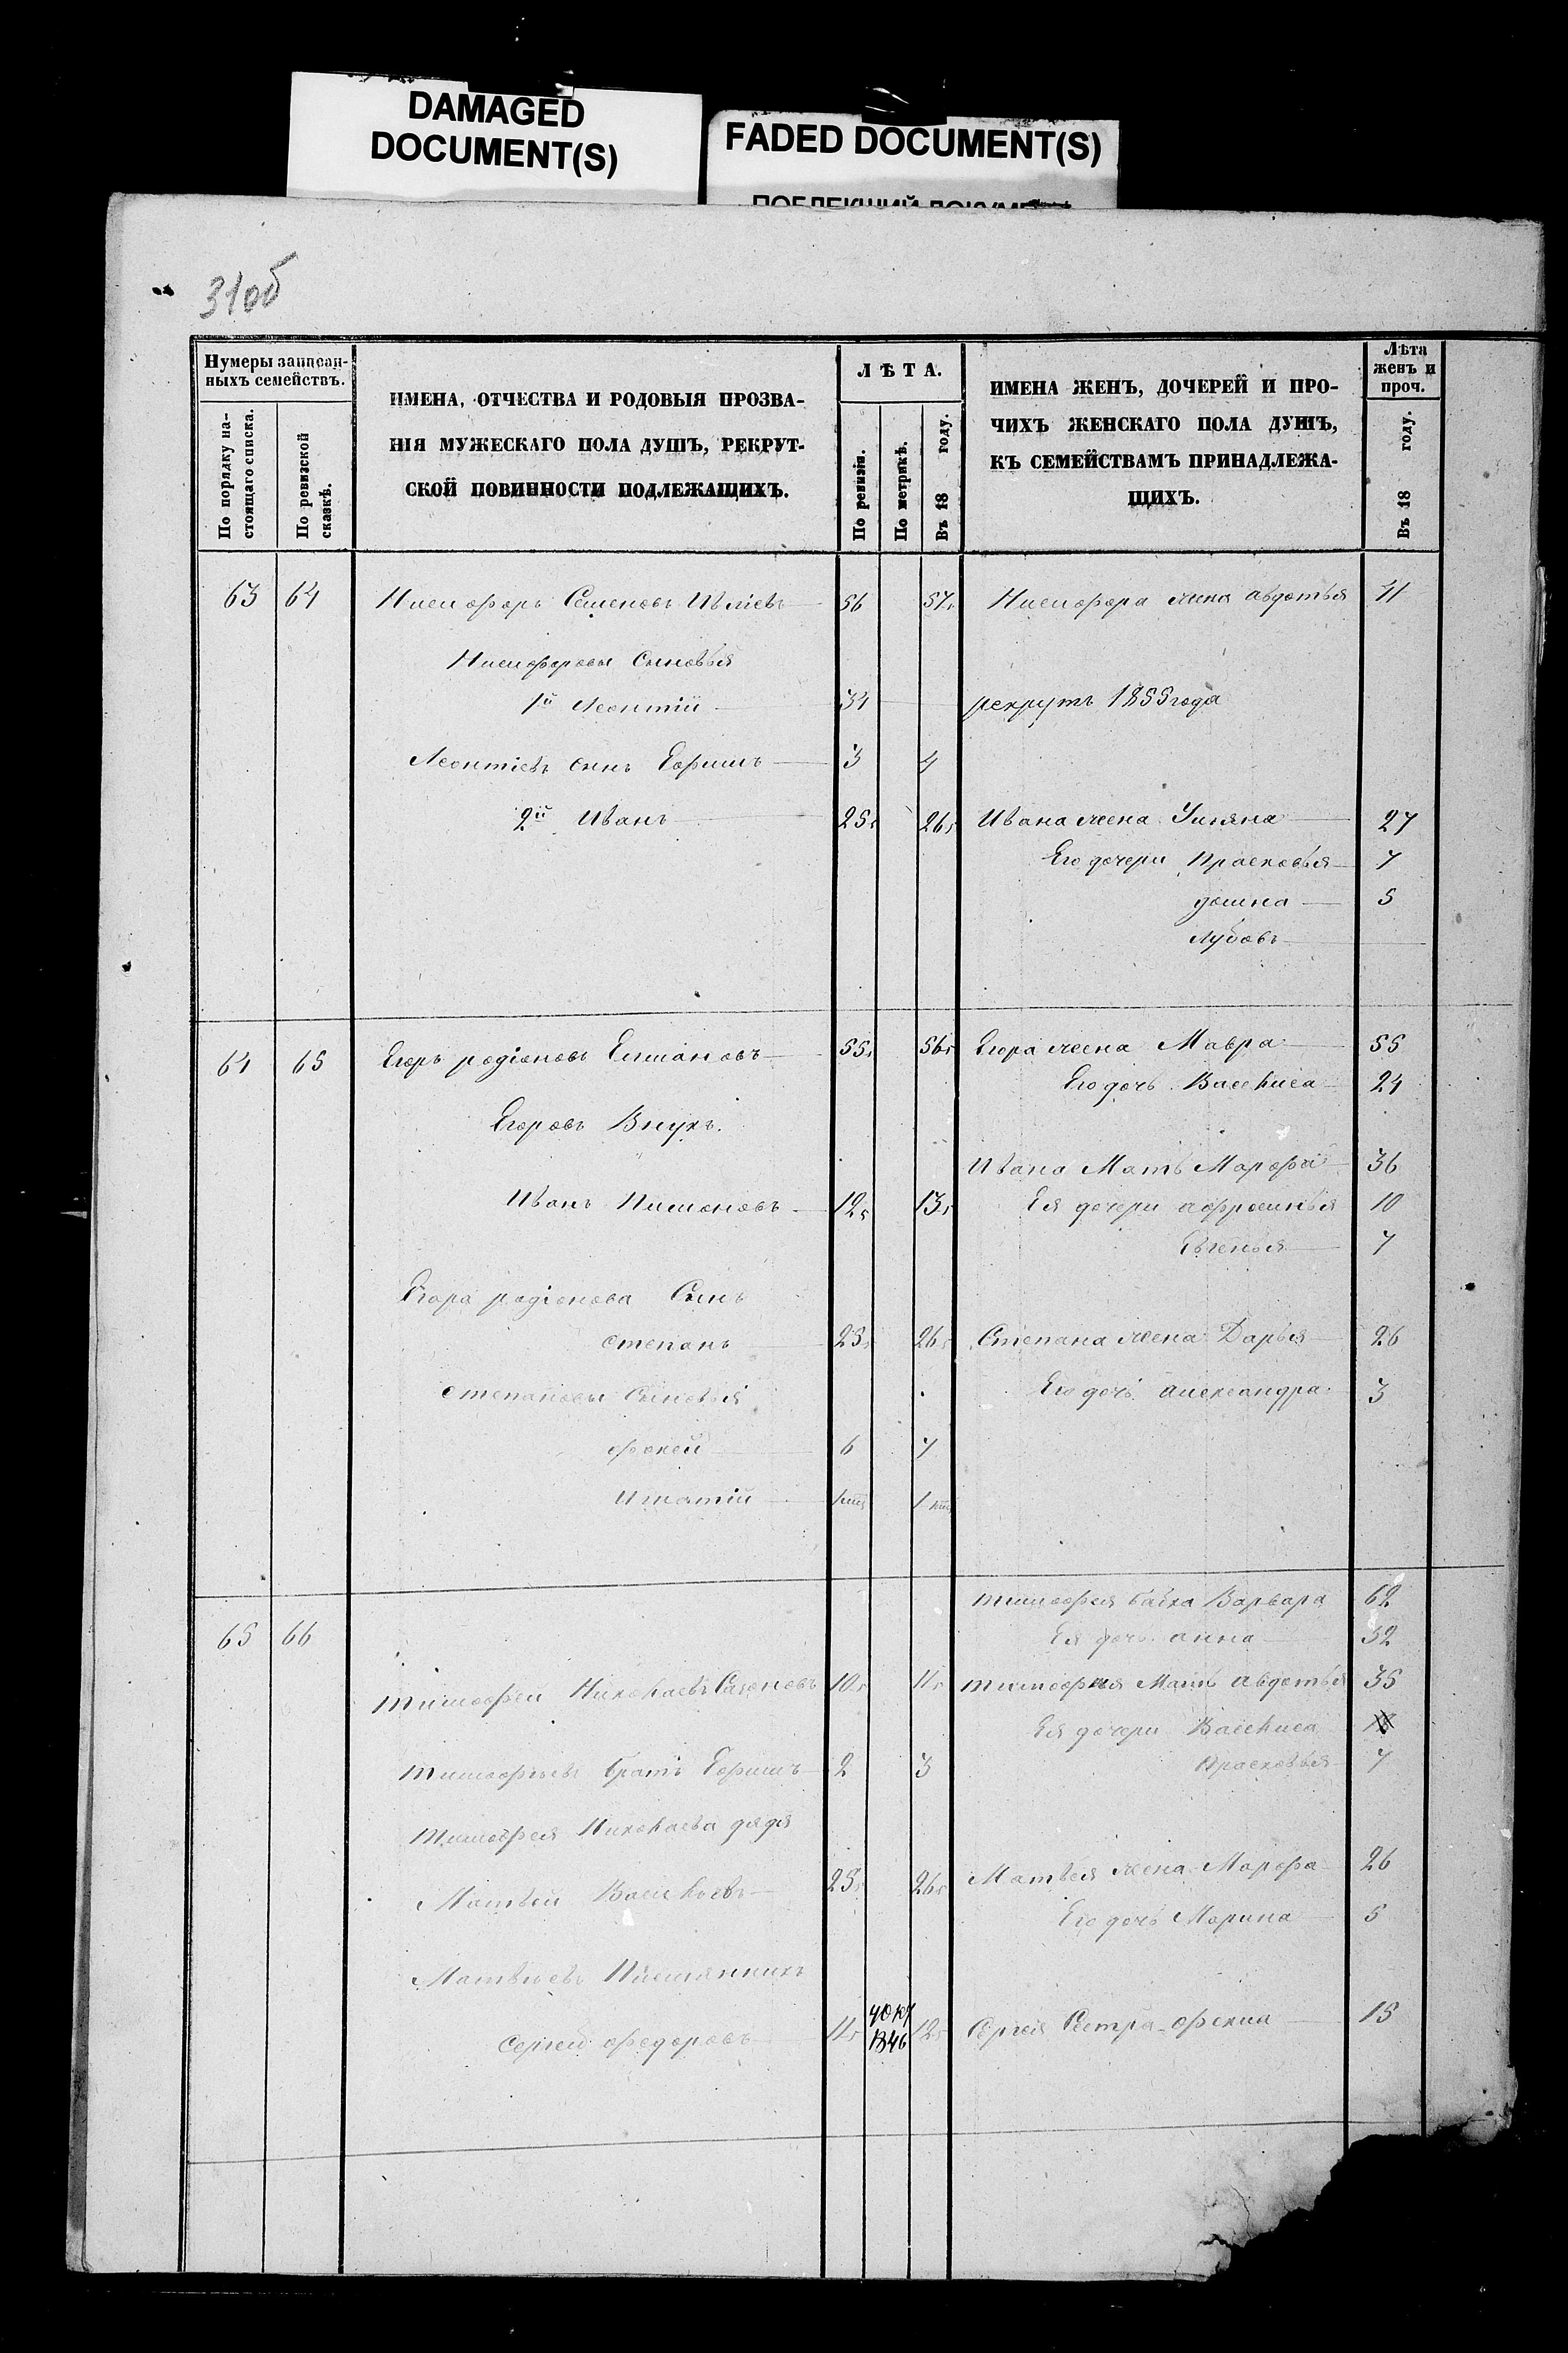 DAMAGED
DOCUMENT(S)
FADED DOCUMENT(S)
31об
Нумеры записан-
ныхъ семействъ.
По порядку на-
стоящаго списка.
По ревизской
сказкѣ.
ИМЕНА, ОТЧЕСТВА И РОДОВЫЯ ПРОЗВА-
НІЯ МУЖЕСКАГО ПОЛА ДУШЪ, РЕКРУТ-
СКОЙ ПОВИННОСТИ ПОДЛЕЖАЩИХЪ.
ЛѢТА.
По ревизіи.
По метрикѣ.
Въ 18 году.
ИМЕНА ЖЕНЪ, ДОЧЕРЕЙ И ПРО-
ЧИХЪ ЖЕНСКАГО ПОЛА ДУШЪ,
КЪ СЕМЕЙСТВАМЪ ПРИНАДЛЕЖА-
ЩИХЪ.
Лѣта
женъ и
проч.
Въ 18 году.
63 64 Никифоръ Семеновъ 56 57 Никифора жена авдотья 41
Никифоровы Сыновья
1й Леонтій 34 рекрутъ 1855 года
Леонтіевъ сынъ Ефимъ 3 4
2й Иванъ 25 26 Ивана жена Ульяна 27
Его дочери Прасковья 7
домна 5
Любовь
64 65 Егоръ родіоновъ 55 56 Егора жена Мавра 55
Его дочь Василиса 24
Егоровъ Внукъ.
Ивана Мать Марфа 36
Иванъ Пименовъ 12 13 Ея дочери афросинья 10
Евгенья 7
Егора родіонова Сынъ
степанъ 25 26 Степана жена Дарья 26
степановы Сыновья Его дочь александра 3
фокей 6 7
Игнатій
Тимофея бабка Варвара 62
65 66 Ея дочь анна 32
Тимофей Николаевъ Сазоновъ 10 11 Тимофея Мать авдотья 35
Ея дочери Василиса
Тимофеевъ братъ Ефимъ 2 3 Прасковья 7
Тимофея Николаева дядя
Матвей Васильевъ 25 26 Матвея жена Марфа 26
Его дочь Марина 5
Матвеевъ Племянникъ
Сергей федоровъ 11 1846 12 Сергея Сестра фекла 15